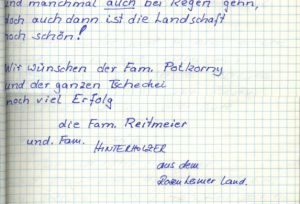 und manchmal auch bei Regen gehn,
doch auch dann ist die Landschaft
noch schön!
Wir wünschen der Fam. Potkorny
und der ganzen Tschechei
noch viel Erfolg
die Fam. Reitmeier
und. Fam. HINTERHOLZER
aus dem
Rosenheimer Land.